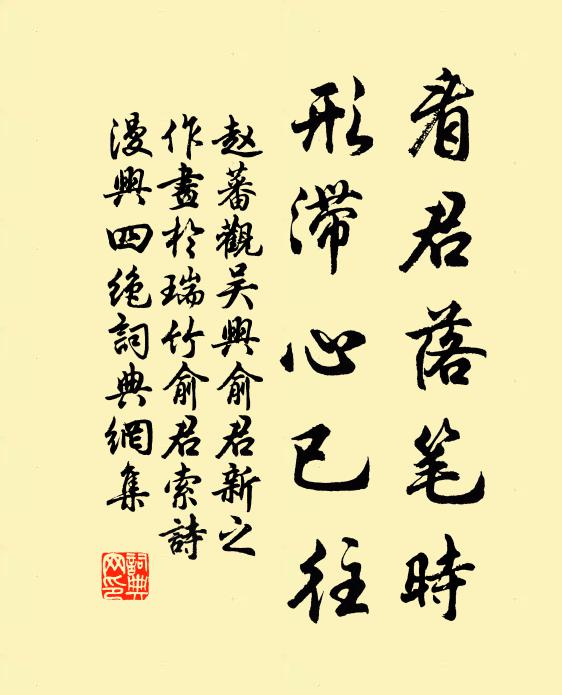 看君落笔時
形滯心已往
赵蕃觀吴興俞君新之
作畫於瑞竹俞君索詩
漫興四绝詞典網集
詞典
网印